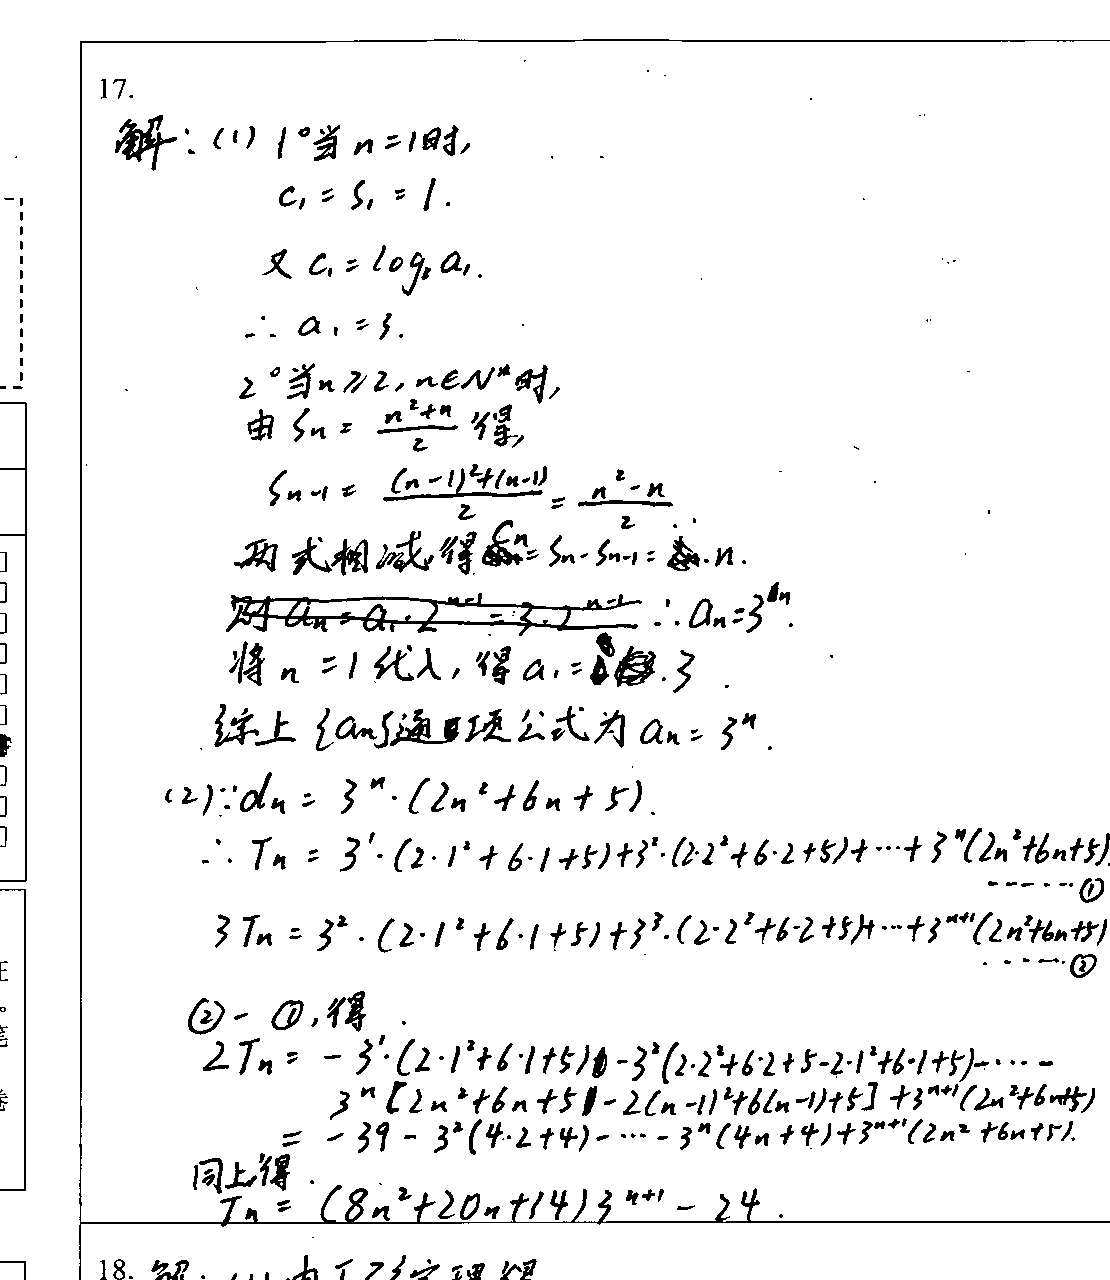 17.
解：(1) 1°当n=1时,
c₁=S₁=1.
又c₁=log₃a₁.
∴a₁=3.
2°当n≥2,n∈N*时,
由Sn=(n²+n)/2得,
Sn-1=((n-1)²+(n-1))/2=(n²-n)/2
两式相减,得Cn=Sn-Sn-1=n.
则an=a₁·2ⁿ⁻¹=3·2ⁿ⁻¹ ∴an=3ⁿ.
将n=1代入,得a₁=3.
综上{an}通项公式为an=3ⁿ.
(2)∵dn=3ⁿ·(2n²+6n+5).
∴Tn=3¹·(2·1²+6·1+5)+3²·(2·2²+6·2+5)+···+3ⁿ(2n²+6n+5)
------①
3Tn=3²·(2·1²+6·1+5)+3³·(2·2²+6·2+5)+···+3ⁿ⁺¹(2n²+6n+5)
------②
②-①,得
2Tn=-3¹·(2·1²+6·1+5)-3²(2·2²+6·2+5-2·1²+6·1+5)-···-
3ⁿ[2n²+6n+5-2(n-1)²+6(n-1)+5]+3ⁿ⁺¹(2n²+6n+5)
=-39-3²(4·2+4)-···-3ⁿ(4n+4)+3ⁿ⁺¹(2n²+6n+5).
同上,得
Tn=(8n²+20n+14)3ⁿ⁺¹-24.
18. 解：(1)由正弦定理得